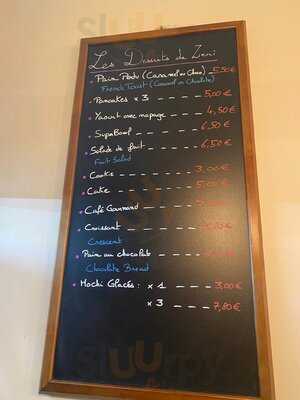 Les Desserts de Zumi
Pain Perdu (Caramel ou Choco) - 5,50€
French Toast (Caramel or Chocolate)
Pancakes x 3 - - - - 5,00€
Yaourt avec - - - 4,50€
Supa Bowl - - - - - 6,50€
Salade de fruit - - - - 6,50€
Fruit Salad
Cookie - - - - - 3,00€
Cake - - - - - 5,00€
Café Gourmand - - -
Croissant - - - - -
Crescent
Pain au chocolat - - -
Chocolate Bread
Mochi Glacés : x 1 - - - 3,00€
x 3 - - - 7,80€
sluurpy